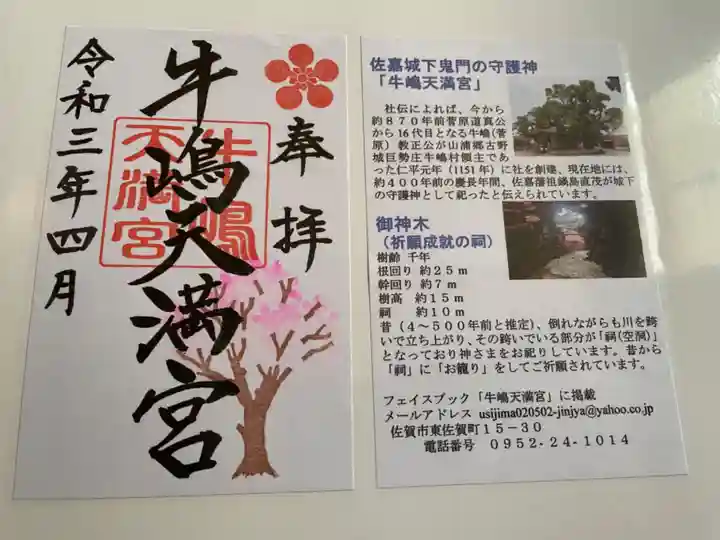 奉拝
牛嶋天満宮
令和三年四月
牛嶋
天満宮
佐嘉城下鬼門の守護神
「牛嶋天満宮」
社伝によれば、今から
約870年前菅原道真公
から16代目となる牛嶋(菅
原)教正公が山浦郷古野
城巨勢庄牛嶋村領主であ
った仁平元年(1151年)に社を創建、現在地には、
約400年前の慶長年間、佐嘉藩祖鍋島直茂が城下
の守護神として祀ったと伝えられています。
御神木
(祈願成就の祠)
樹齢 千年
根回り 約25m
幹回り 約7m
樹高 約15m
祠 約10m
昔(4～500年前と推定)、倒れながらも川を跨
いで立ち上がり、その跨いでいる部分が「祠(空洞)」
となっており神さまをお祀りしています。昔から
「祠」に「お籠り」をしてご祈願されています。
フェイスブック「牛嶋天満宮」に掲載
メールアドレス usijima020502-jinjya@yahoo.co.jp
佐賀市東佐賀町15-30
電話番号 0952-24-1014